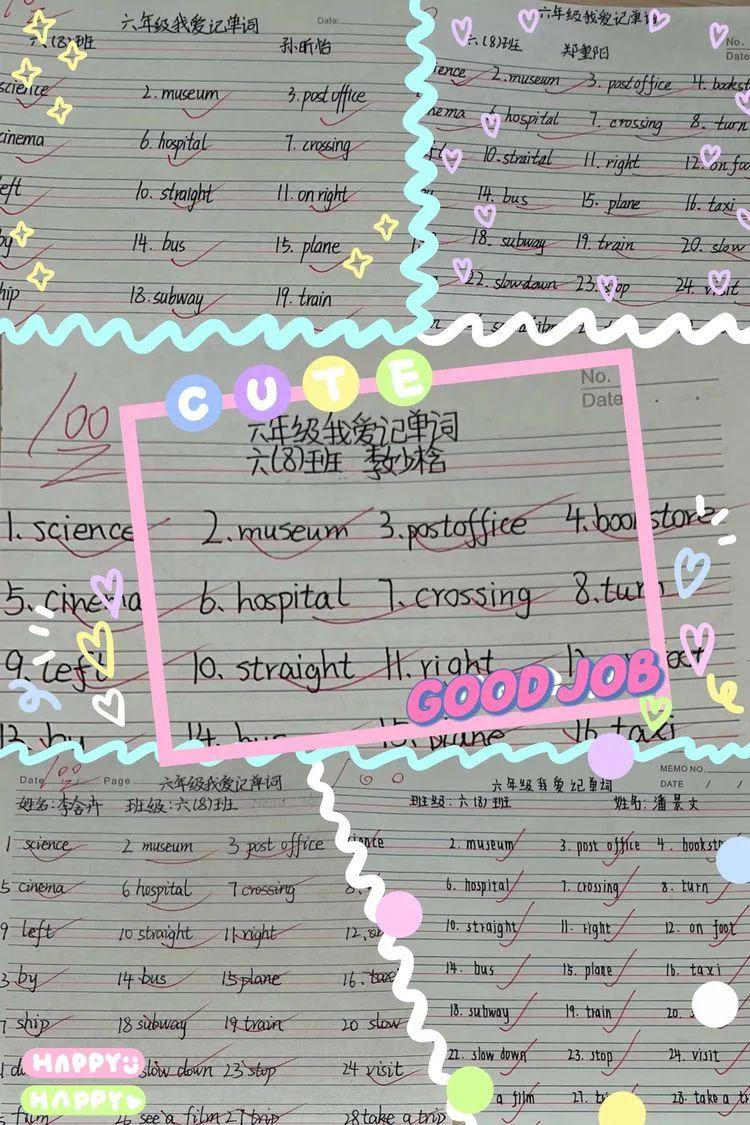 六年级我爱记单词
Date:
六(8)班 孙昕怡
science 2. museum 3. post office
cinema 6. hospital 7. crossing
left 10. straight 11. on right
by 14. bus 15. plane
ship 18. subway 19. train
六年级我爱记单词
六(8)班 郑重阳
No.
Date
ience 2. museum 3. postoffice 4. bookst
nema 6 hospital 7. crossing 8. turn
10. straital 11. right 12. on foo
14. bus 15. plane 16. taxi
18. subway 19. train 20. slow
22. slowdown 23. stop 24. visit
CUTE
No.
Date
100
六年级我爱记单词
六(8)班 李妙晗
1. science 2. museum 3. postoffice 4. bookstore
5. cinema 6. hospital 7. crossing 8. turn
9. left 10. straight 11. right
GOOD JOB
13. by 14. bus 15. plane 16. taxi
Date 100 Page 六年级我爱记单词
姓名:李含卉 班级:六(8)班
1 science 2 museum 3 post office
5 cinema 6 hospital 7 crossing
9 left 10 straight 11 right 12.
3 by 14 bus 15 plane 16. taxi
7 ship 18 subway 19 train 20 slow
slow down 23 stop 24 visit
HAPPY
HAPPY
film 26 see a film 27 trip 28 take a trip
MEMO NO.
DATE / /
100
六年级我爱记单词
班级:六(8)班 姓名:潘景文
ience 2. museum 3. post office 4. bookst
6. hospital 7. crossing 8. turn
10. straight 11. right 12. on foot
14. bus 15. plane 16. taxi
18. subway 19. train 20. s
22. slow down 23. stop 24. visit
a film 27. tr 28. take a tr